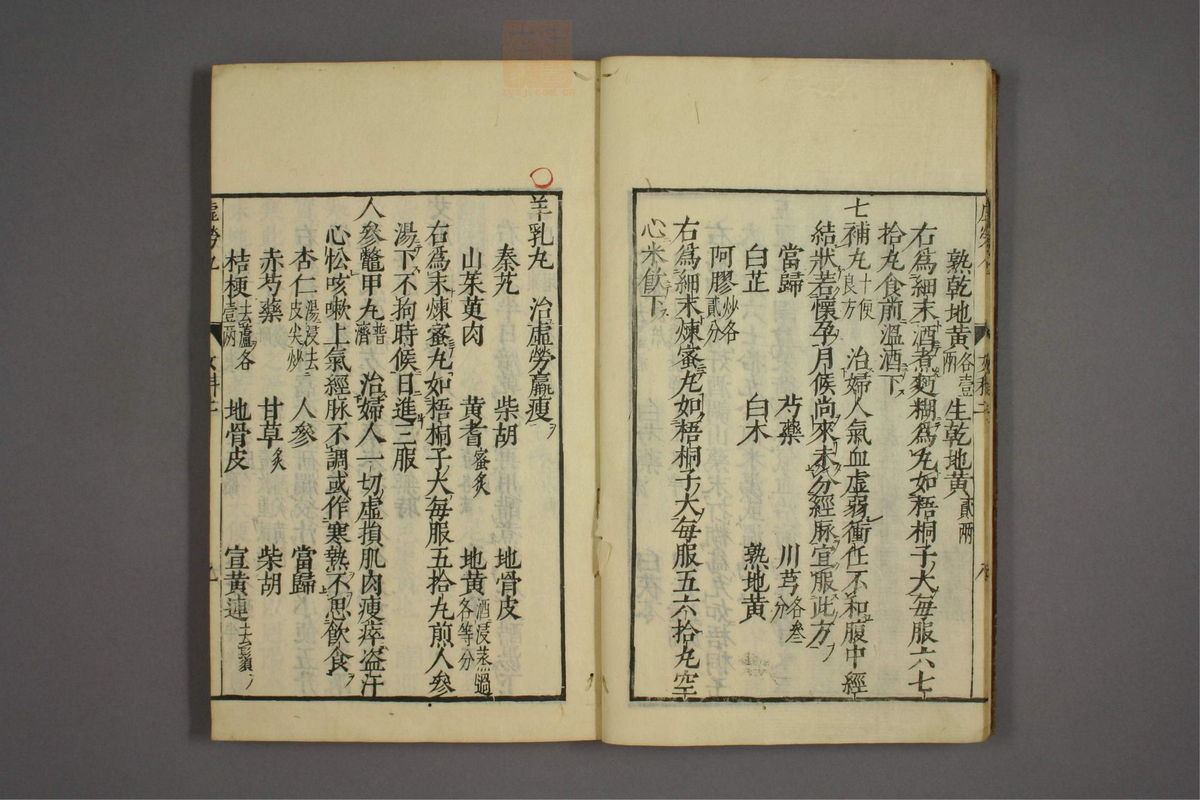 熟乾地黃各壹兩 生乾地黃貳兩
右爲細末酒煮麪糊爲丸如梧桐子大每服六七
拾丸食前溫酒下
七補丸十便良方 治婦人氣血虛弱衝任不和腹中經
結狀若懷孕月候尚來未分經脉宜服此方
當歸 芍藥 川芎各叁分
白芷 白朮 熟地黃
阿膠炒各貳分
右爲細末煉蜜丸如梧桐子大每服五六拾丸空
心米飮下
羊乳丸 治虛勞羸瘦
秦艽 柴胡 地骨皮
山茱萸肉 黃耆蜜炙 地黃酒浸蒸過各等分
右爲末煉蜜丸如梧桐子大每服五拾丸煎人參
湯下不狗時候日進三服
人參鼈甲丸普濟 治婦人一切虛損肌肉瘦瘁盜汗
心忪咳嗽上氣經脉不調或作寒熱不思飮食
杏仁湯浸去皮尖炒 人參 當歸
赤芍藥 甘草炙 柴胡
桔梗去蘆各壹兩 地骨皮 宣黃連去鬚
虛勞九